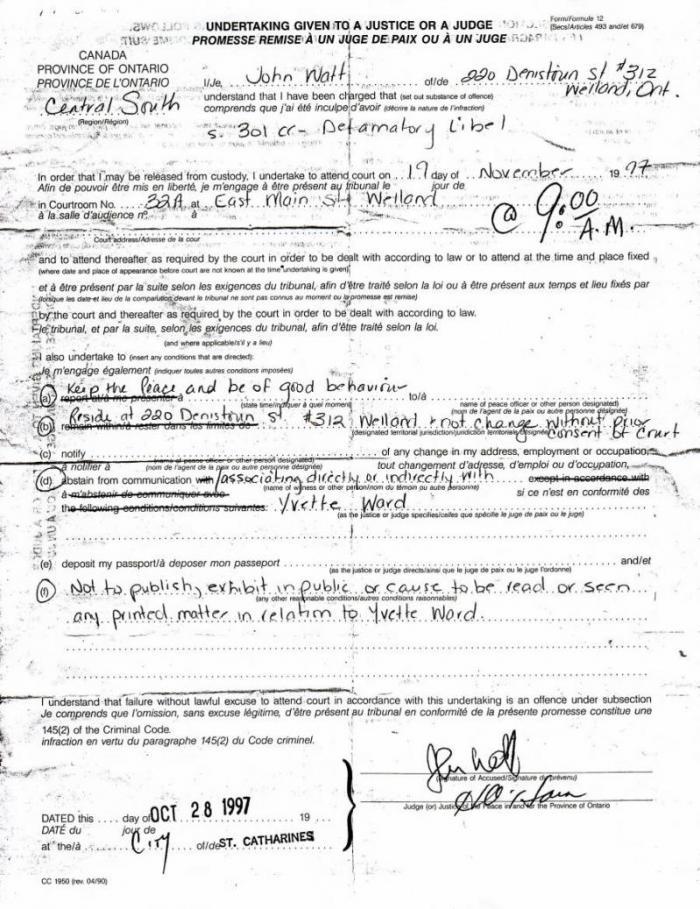 Form/Formule 12
(Secs/Articles 493 and/et 679)
UNDERTAKING GIVEN TO A JUSTICE OR A JUDGE
PROMESSE REMISE À UN JUGE DE PAIX OU À UN JUGE
CANADA
PROVINCE OF ONTARIO
PROVINCE DE L'ONTARIO
Central South
(Region/Région)
I/Je, John Watt of/de 220 Denistoun St #312
Welland, Ont.
understand that I have been charged that (set out substance of offence)
comprends que j'ai été inculpe d'avoir (décrire la nature de l'infraction)
s. 301 cc - Defamatory Libel
In order that I may be released from custody, I undertake to attend court on 19 day of November 19 97
Afin de pouvoir être mis en liberté, je m'engage à être présent au tribunal le jour de
in Courtroom No. 32A at East Main St Welland @ 9:00 A.M.
à la salle d'audience nº à
Court address/Adresse de la cour
and to attend thereafter as required by the court in order to be dealt with according to law or to attend at the time and place fixed
(where date and place of appearance before court are not known at the time undertaking is given)
et à être présent par la suite selon les exigences du tribunal, afin d'être traité selon la loi ou à être présent aux temps et lieu fixés par
(lorsque les date et lieu de la comparution devant le tribunal ne sont pas connus au moment ou la promesse est remise)
by the court and thereafter as required by the court in order to be dealt with according to law.
le tribunal, et par la suite, selon les exigences du tribunal, afin d'être traité selon la loi.
(and where applicable/s'il y a lieu)
I also undertake to (insert any conditions that are directed):
Je m'engage également (indiquer toutes autres conditions imposées)
(a) Keep the Peace and be of good behaviour
report at/à me présenter à to/à
(state time/indiquer à quel moment) name of peace officer or other person designated)
(nom de l'agent de la paix ou autre personne désignée)
(b) Reside at 220 Denistoun St #312 Welland & not change without prior
remain within/à rester dans les limites de (designated territorial jurisdiction/juridiction territoriale désignée) consent of Court
(c) notify of any change in my address, employment or occupation
à notifier à (name of peace officer or other person designated) tout changement d'adresse, d'emploi ou d'occupation,
(nom de l'agent de la paix ou autre personne désignée)
(d) abstain from communication with/associating directly or indirectly with except in accordance with
à m'abstenir de communiquer avec (name of witness or other person/nom du témoin ou autre personne) si ce n'est en conformité des
the following conditions/conditions suivantes: Yvette Ward
(as the justice or judge specifies/celles que spécifie le juge de paix ou le juge)
(e) deposit my passport/à déposer mon passeport and/et
(as the justice or judge directs/ainsi que le juge de paix ou le juge l'ordonne)
(f) Not to publish, exhibit in public or cause to be read or seen
(any other reasonable conditions/autres conditions raisonnables)
any printed matter in relation to Yvette Ward.
I understand that failure without lawful excuse to attend court in accordance with this undertaking is an offence under subsection
Je comprends que l'omission, sans excuse légitime, d'être présent au tribunal en conformité de la présente promesse constitue une
145(2) of the Criminal Code.
infraction en vertu du paragraphe 145(2) du Code criminel.
(Signature of Accused/Signature du prévenu)
Judge (or) Justice of the Peace in and for the Province of Ontario
DATED this day of OCT 28 1997 19
DATÉ du jour de
at the/à City of/de ST. CATHARINES
CC 1950 (rev. 04/90)